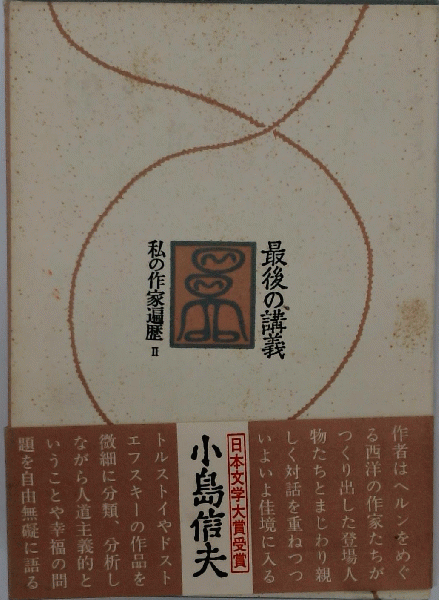 最後の講義
私の作家遍歴 II
作者はヘルンをめぐ
る西洋の作家たちが
つくり出した登場人
物たちとまじわり親
しく対話を重ねつつ
いよいよ佳境に入る
日本文学大賞受賞
小島信夫
トルストイやドスト
エフスキーの作品を
微細に分類、分析し
ながら人道主義的と
いうことや幸福の問
題を自由無礙に語る